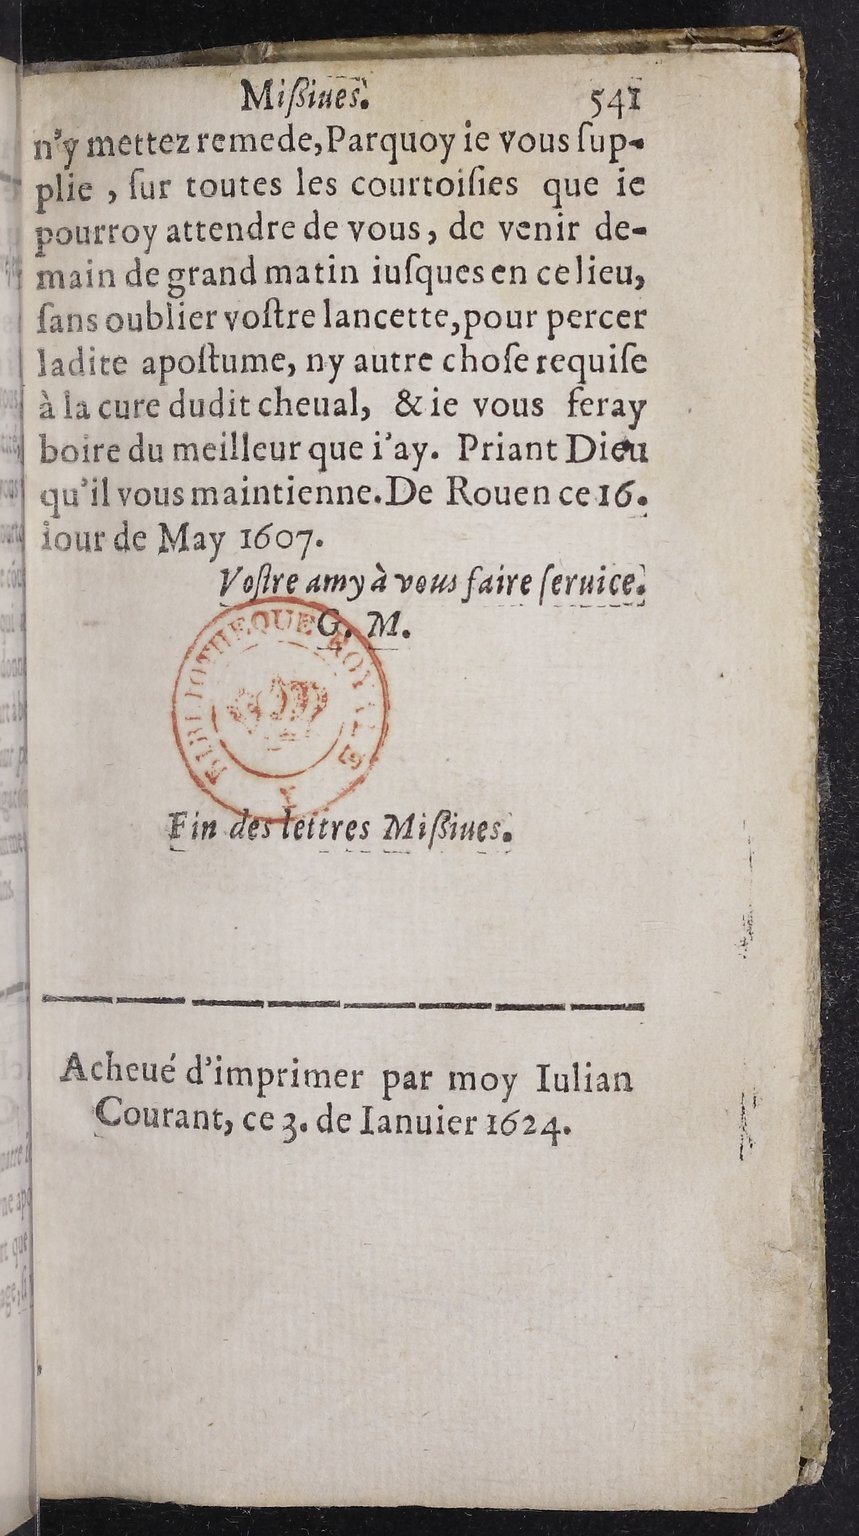 Miſſiues. 541
n'y mettez remede, Parquoy ie vous ſup-
plie, ſur toutes les courtoiſies que ie
pourroy attendre de vous, de venir de-
main de grand matin iuſques en ce lieu,
ſans oublier voſtre lancette, pour percer
ladite apoſtume, ny autre choſe requiſe
à la cure dudit cheual, & ie vous feray
boire du meilleur que i'ay. Priant Dieu
qu'il vous maintienne. De Rouen ce 16.
iour de May 1607.
Voſtre amy à vous faire ſeruice.
G. M.
BIBLIOTHEQUE ROYALE
Fin des lettres Miſſiues.
Acheué d'imprimer par moy Iulian
Courant, ce 3. de Ianuier 1624.